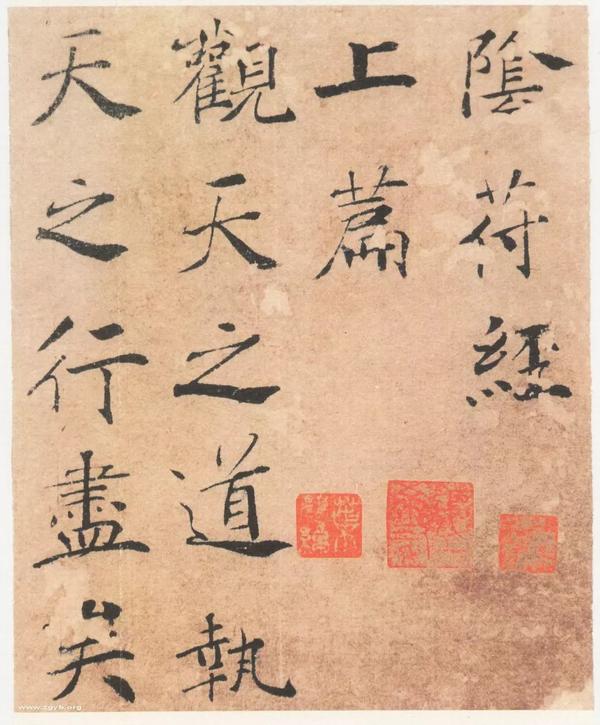 陰符經
上篇
觀天之道執
天之行盡矣
www.zgyb.org